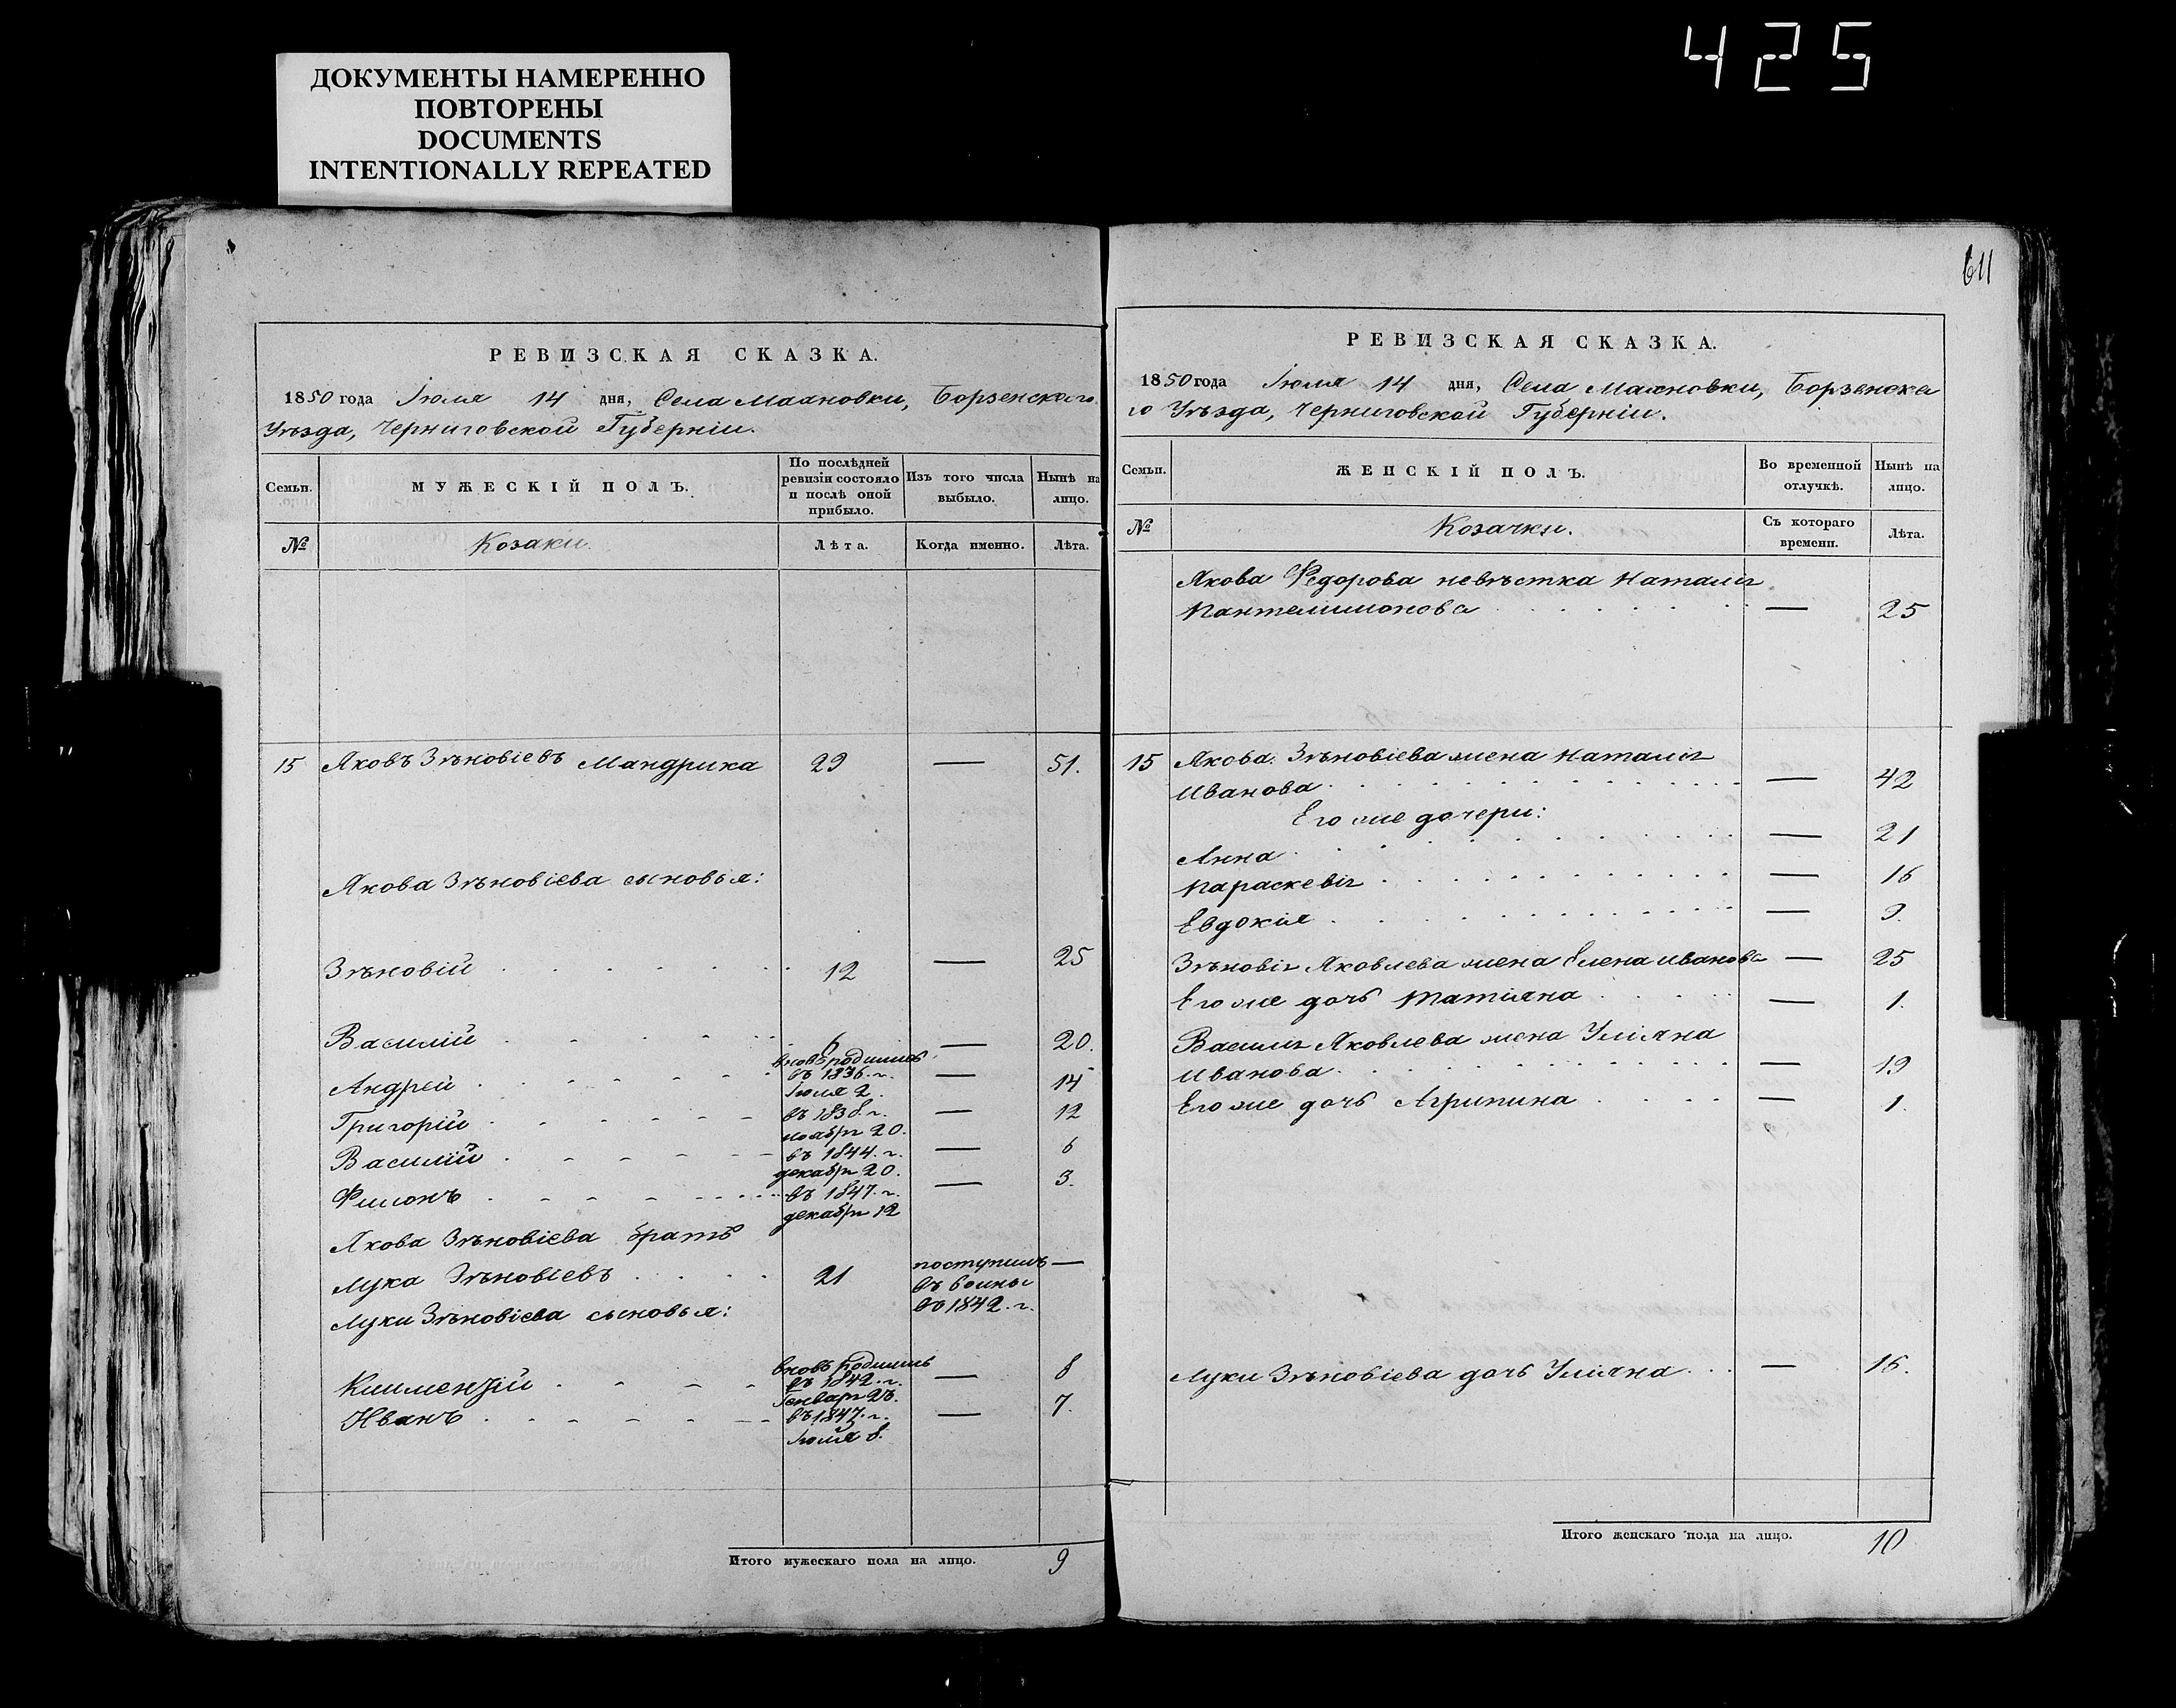 425
ДОКУМЕНТЫ НАМЕРЕННО
ПОВТОРЕНЫ
DOCUMENTS
INTENTIONALLY REPEATED
РЕВИЗСКАЯ СКАЗКА.
1850 года Іюля 14 дня, Села Махновки, Борзенскаго
Уѣзда, Черниговской Губерніи.
Семьи.
МУЖЕСКІЙ ПОЛЪ.
По послѣдней
ревизіи состояло
и послѣ оной
прибыло.
Изъ того числа
выбыло.
Нынѣ на
лицо.
№
Козаки.
Лѣта.
Когда именно.
Лѣта.
15 Яковъ Зѣновіевъ Мандрика 29 — 51.
Якова Зѣновіева сыновья:
Зѣновій 12 — 25
Василій 6 — 20.
вновь родились
Андрей въ 1836. г. — 14
Іюля 2.
Григорій въ 1838 г. — 12
ноабря 20.
Василій въ 1844. г. — 6
декабря 20.
Филонъ въ 1847. г. — 3.
декабря 12
Якова Зѣновіева братъ
Лука Зѣновіевъ 21 поступилъ —
въ воины
въ 1842. г.
Луки Зѣновіева сыновья:
вновь родились
Климентій въ 1842. г. — 8
Генваря 23.
Иванъ въ 1847. г. — 7.
Іюля 8.
Итого мужескаго пола на лицо. 9
611
РЕВИЗСКАЯ СКАЗКА.
1850 года Іюля 14 дня, Села Махновки, Борзенска
го Уѣзда, Черниговской Губерніи.
Семьи.
ЖЕНСКІЙ ПОЛЪ.
Во временной
отлучкѣ.
Нынѣ на
лицо.
№
Козачки.
Съ котораго
времени.
Лѣта.
Якова Федорова невѣстка Наталія
Пантелимонова — 25
15 Якова Зѣновіева жена Наталія
Иванова — 42
Его же дочери:
Анна — 21
Параскевія — 16
Евдокія — 9.
Зѣновія Яковлева жена Елена Иванова — 25
Его же дочь Татіяна — 1.
Василія Яковлева жена Уліяна
Иванова — 19
Его же дочь Агрипина — 1.
Луки Зѣновіева дочь Уліяна — 16.
Итого женскаго пола на лицо. 10